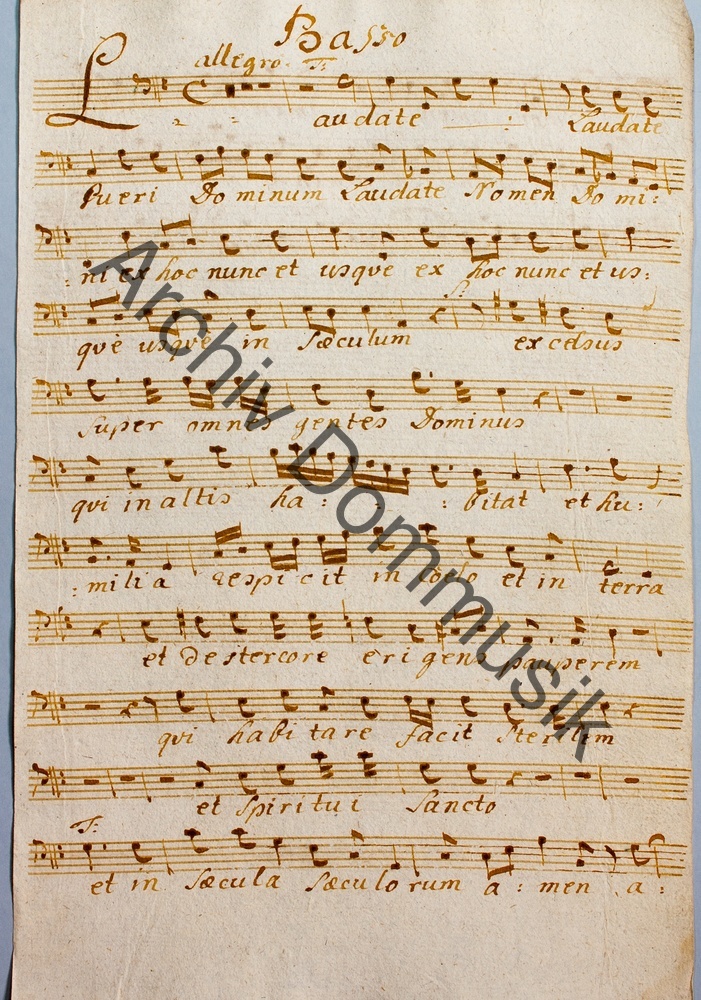 Basso
allegro. T:
Laudate : Laudate
Pueri Dominum Laudate Nomen Do mi:
: ni ex hoc nunc et usque ex hoc nunc et us:
S:
què usquè in Sæculum excelsus
super omnes gentes Dominus
qui in altis ha : : : bitat et hu:
: mili a respicit in Coelo et in terra
et de stercore erigens pauperem
qui habitare facit sterilem
et Spiritui Sancto
T:
et in Sæcula Sæculorum a : men . a :
Archiv Dommusik